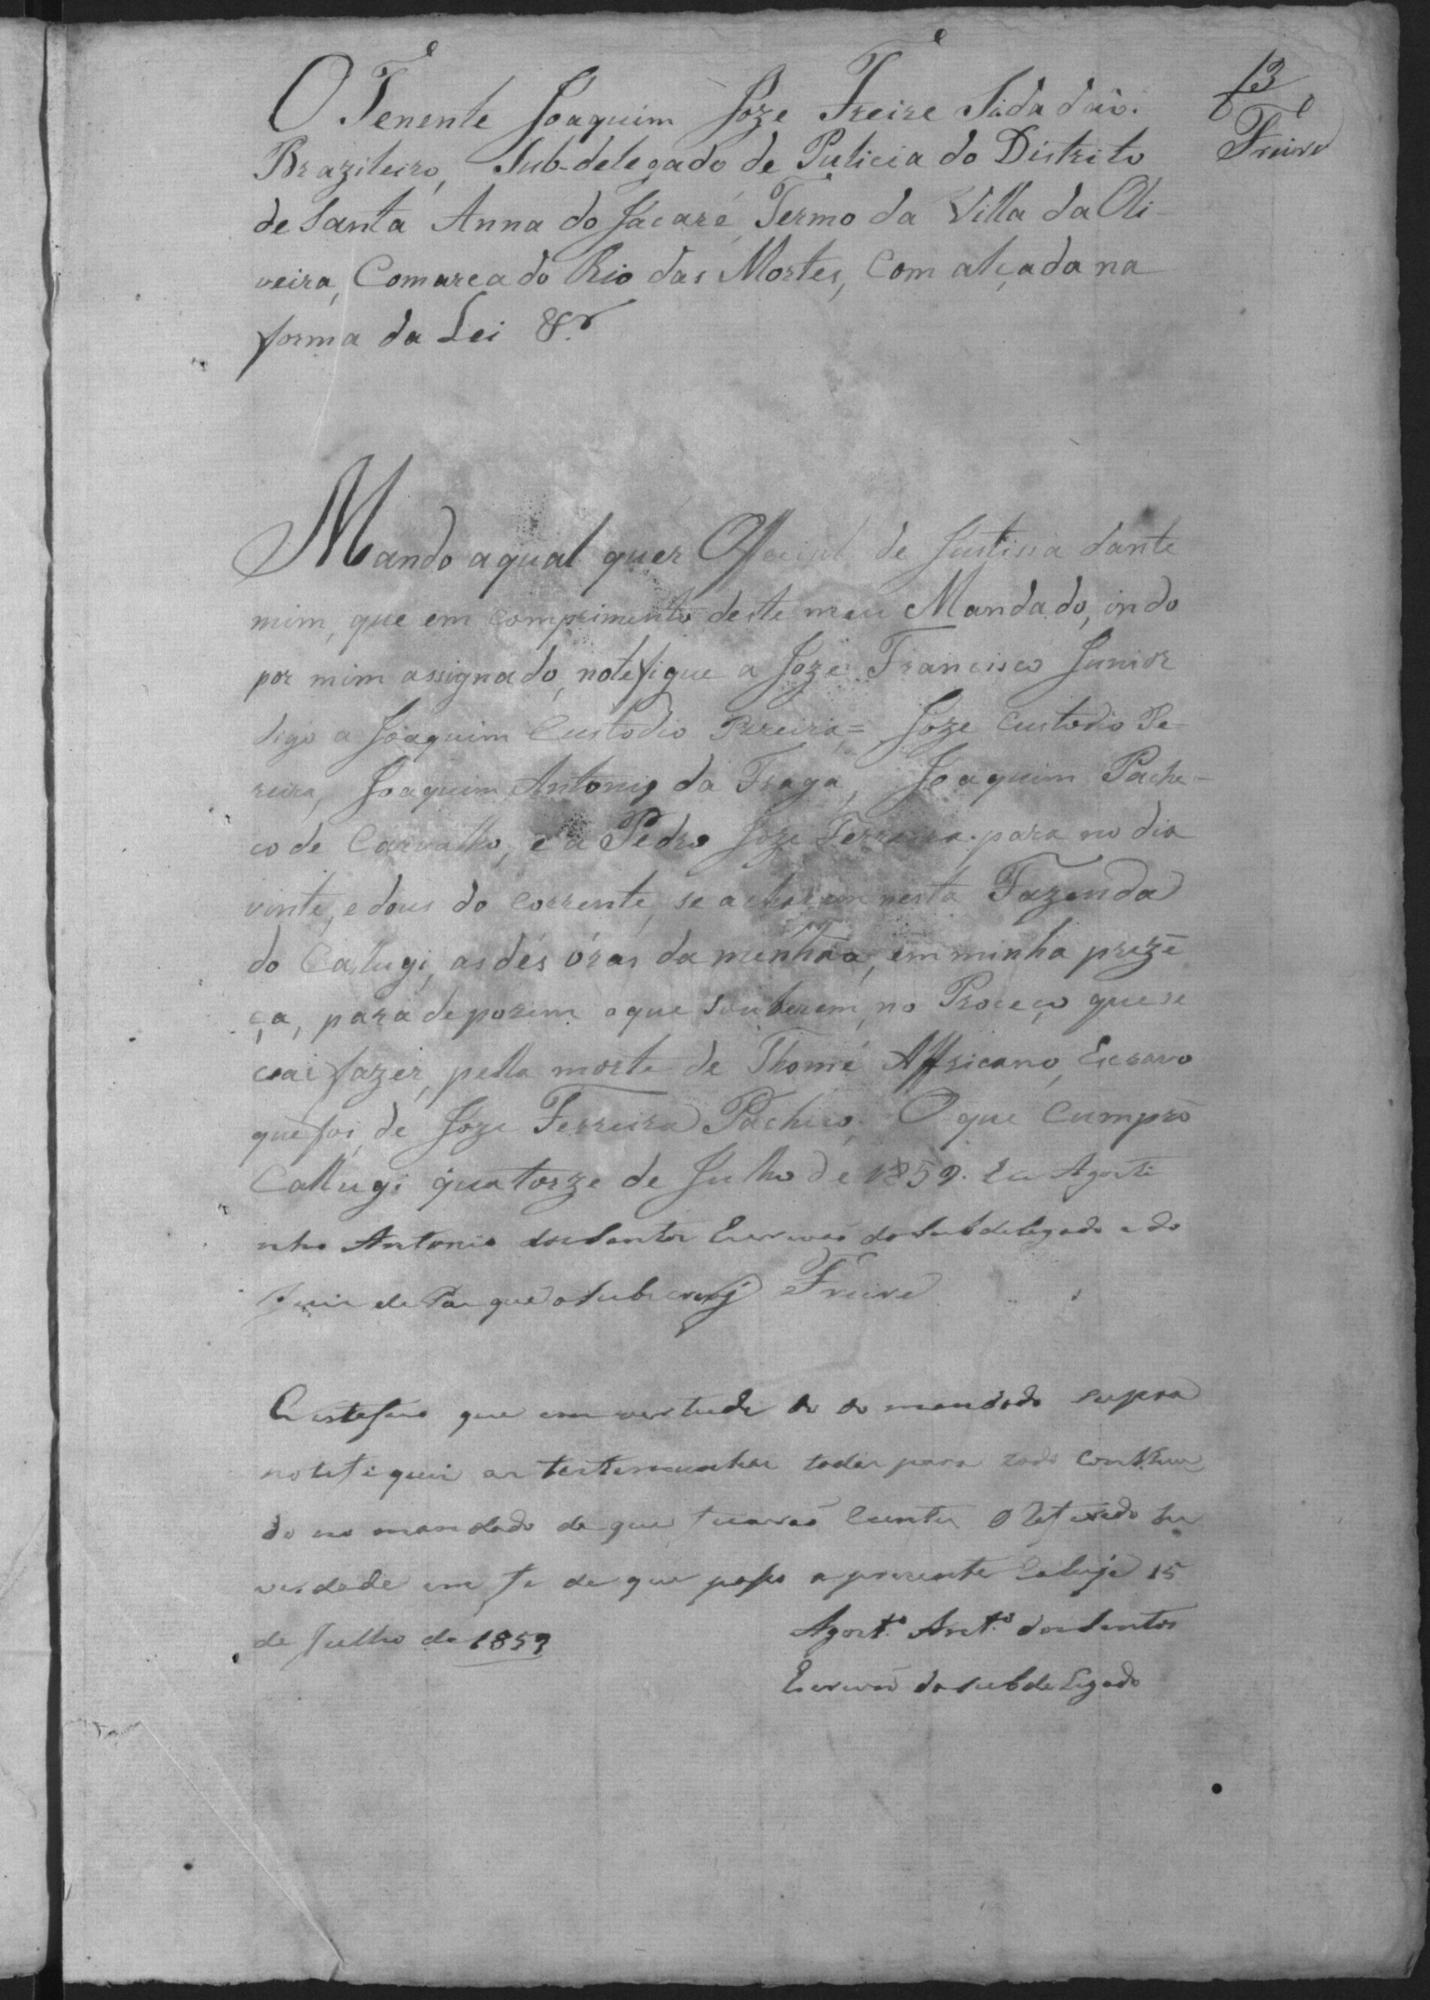 13
Freire
O Tenente Joaquim Joze Freire Sidadaõ
Brazileiro, Sub-delegado de Pulicia do Distrito
de Santa Anna do Jacaré, Termo da Villa da Oli-
veira, Comarca do Rio das Mortes, Com alçada na
forma da Lei &.ª
Mando aqual quer Official de Justissa dante
mim, que em comprimento deste meu Mandado, indo
por mim assignado, notefique a Joze Francisco Junior
digo a Joaquim Custodio Pereira = Joze Custodio Pe-
reira, Joaquim Antonio da Fraga, Joaquim Pache-
co de Carvalho, e a Pedro Joze Ferreira para no dia
vinte, e dous do corrente, se acharem nesta Fazenda
do Calugi, as dés óras da menhãa, em minha prezẽ
ça, para deporem o que souberem, no Proceço que se
vai fazer, pella morte de Thomé Affricano, Escravo
que foi, de Joze Ferreira Pacheco. O que Cumprõ
Callugi quatorze de Julho de 1859. Eu Agosti
nho Antonio dos Santos Escrivaõ do Subdelegado e do
Juis de Pas que o Subscrevy Freire
Certefico que em vertude do do mandado supra
notefiquei as testemunhas todas para todo contheu
do no mandado de que ficaraõ Cientes O Referido he
verdade em fe de que paço a prezente Calugi 15
de Julho de 1859
Agost.º Ant.º dos Santos
Escrivaõ do Subdelegado